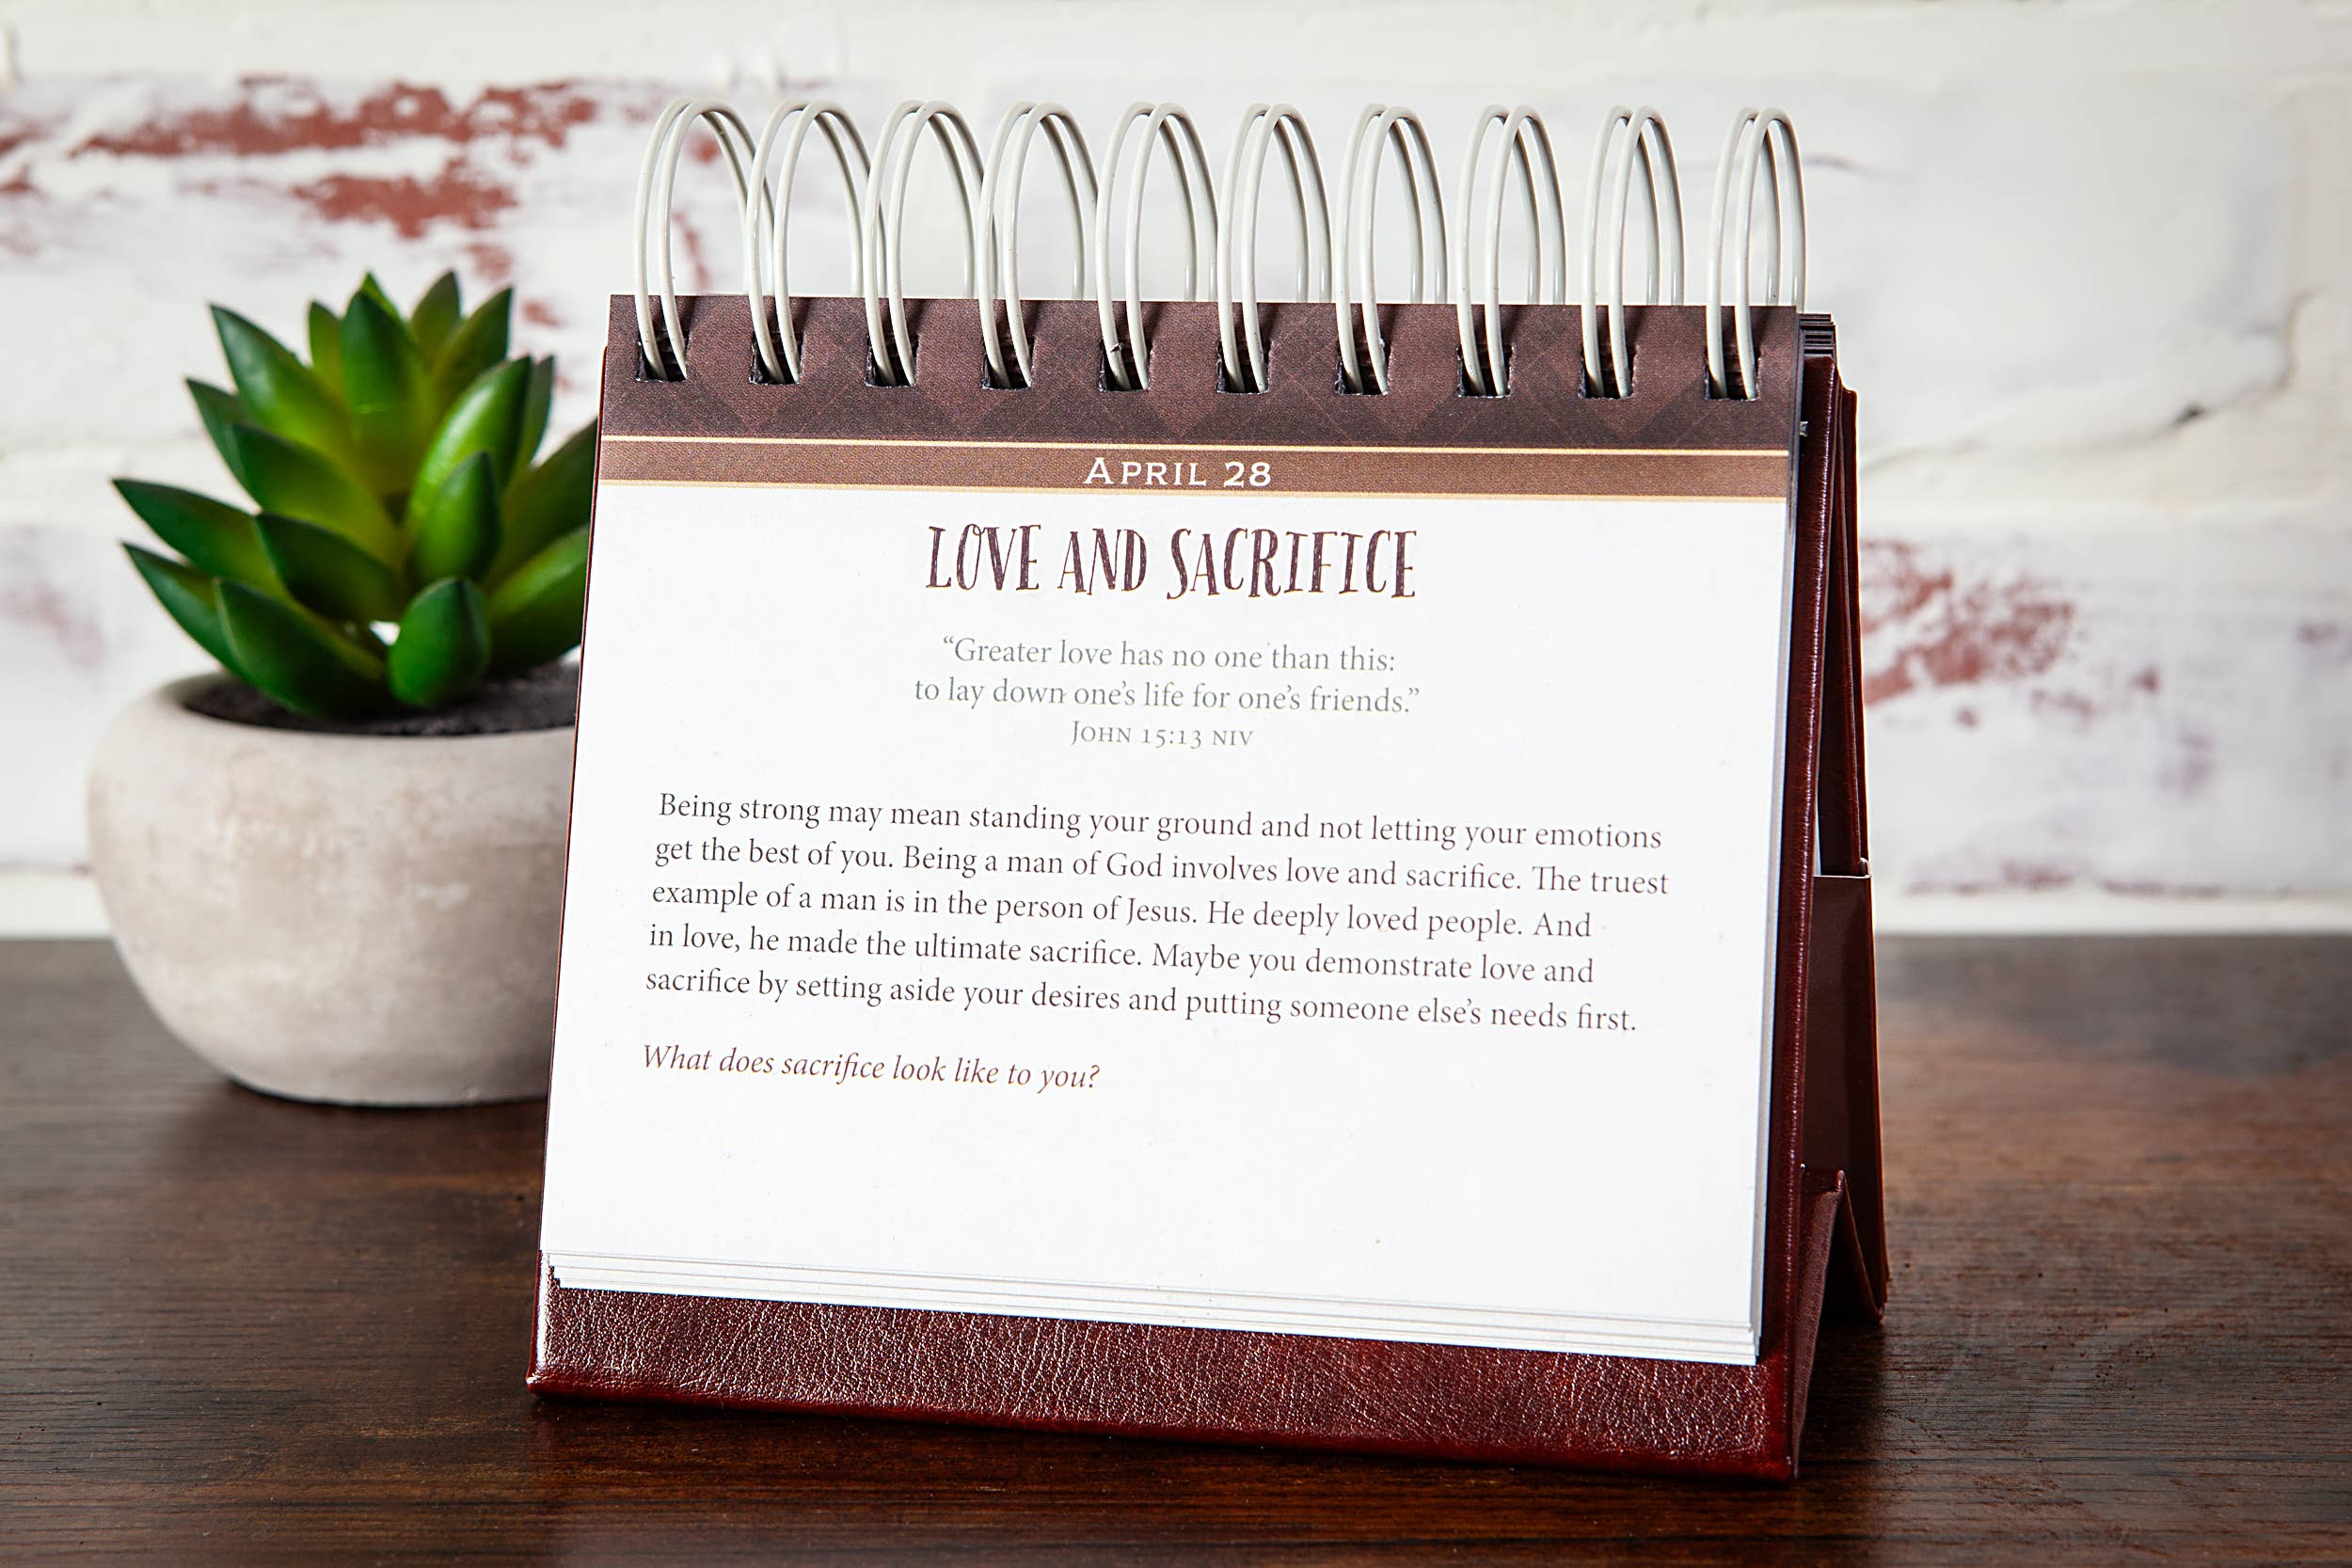 APRIL 28
LOVE AND SACRIFICE
“Greater love has no one than this:
to lay down one’s life for one’s friends.”
JOHN 15:13 NIV
Being strong may mean standing your ground and not letting your emotions
get the best of you. Being a man of God involves love and sacrifice. The truest
example of a man is in the person of Jesus. He deeply loved people. And
in love, he made the ultimate sacrifice. Maybe you demonstrate love and
sacrifice by setting aside your desires and putting someone else’s needs first.
What does sacrifice look like to you?